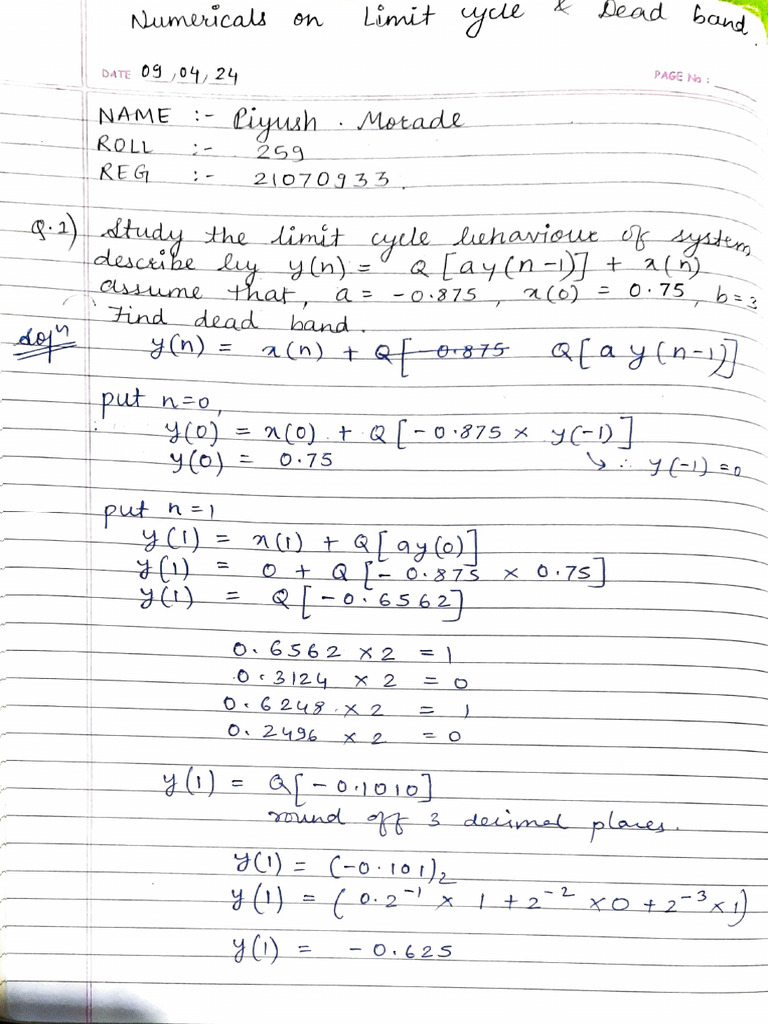 Numericals on Limit cycle & Dead band.
DATE 09,04,24
PAGE No:
NAME :- Piyush . Morade
ROLL :- 259
REG :- 21070933.
Q.1) Study the limit cycle behaviour of system,
describe by y(n) = Q [ay(n-1)] + x(n)
assume that, a = -0.875, x(0) = 0.75, b=3
Find dead band.
Solⁿ y(n) = x(n) + Q[ -0.875 Q[a y(n-1)]
put n=0,
y(0) = x(0) + Q[-0.875 × y(-1)]
y(0) = 0.75 ↳ ∴ y(-1) =0
put n=1
y(1) = x(1) + Q[ay(0)]
y(1) = 0 + Q[-0.875 × 0.75]
y(1) = Q[-0.6562]
0.6562 ×2 = 1
0.3124 ×2 = 0
0.6248 ×2 = 1
0.2496 ×2 = 0
y(1) = Q[-0.1010]
round off 3 decimal places.
y(1) = (-0.101)₂
y(1) = (0.2⁻¹ × 1 + 2⁻² ×0 + 2⁻³×1)
y(1) = -0.625